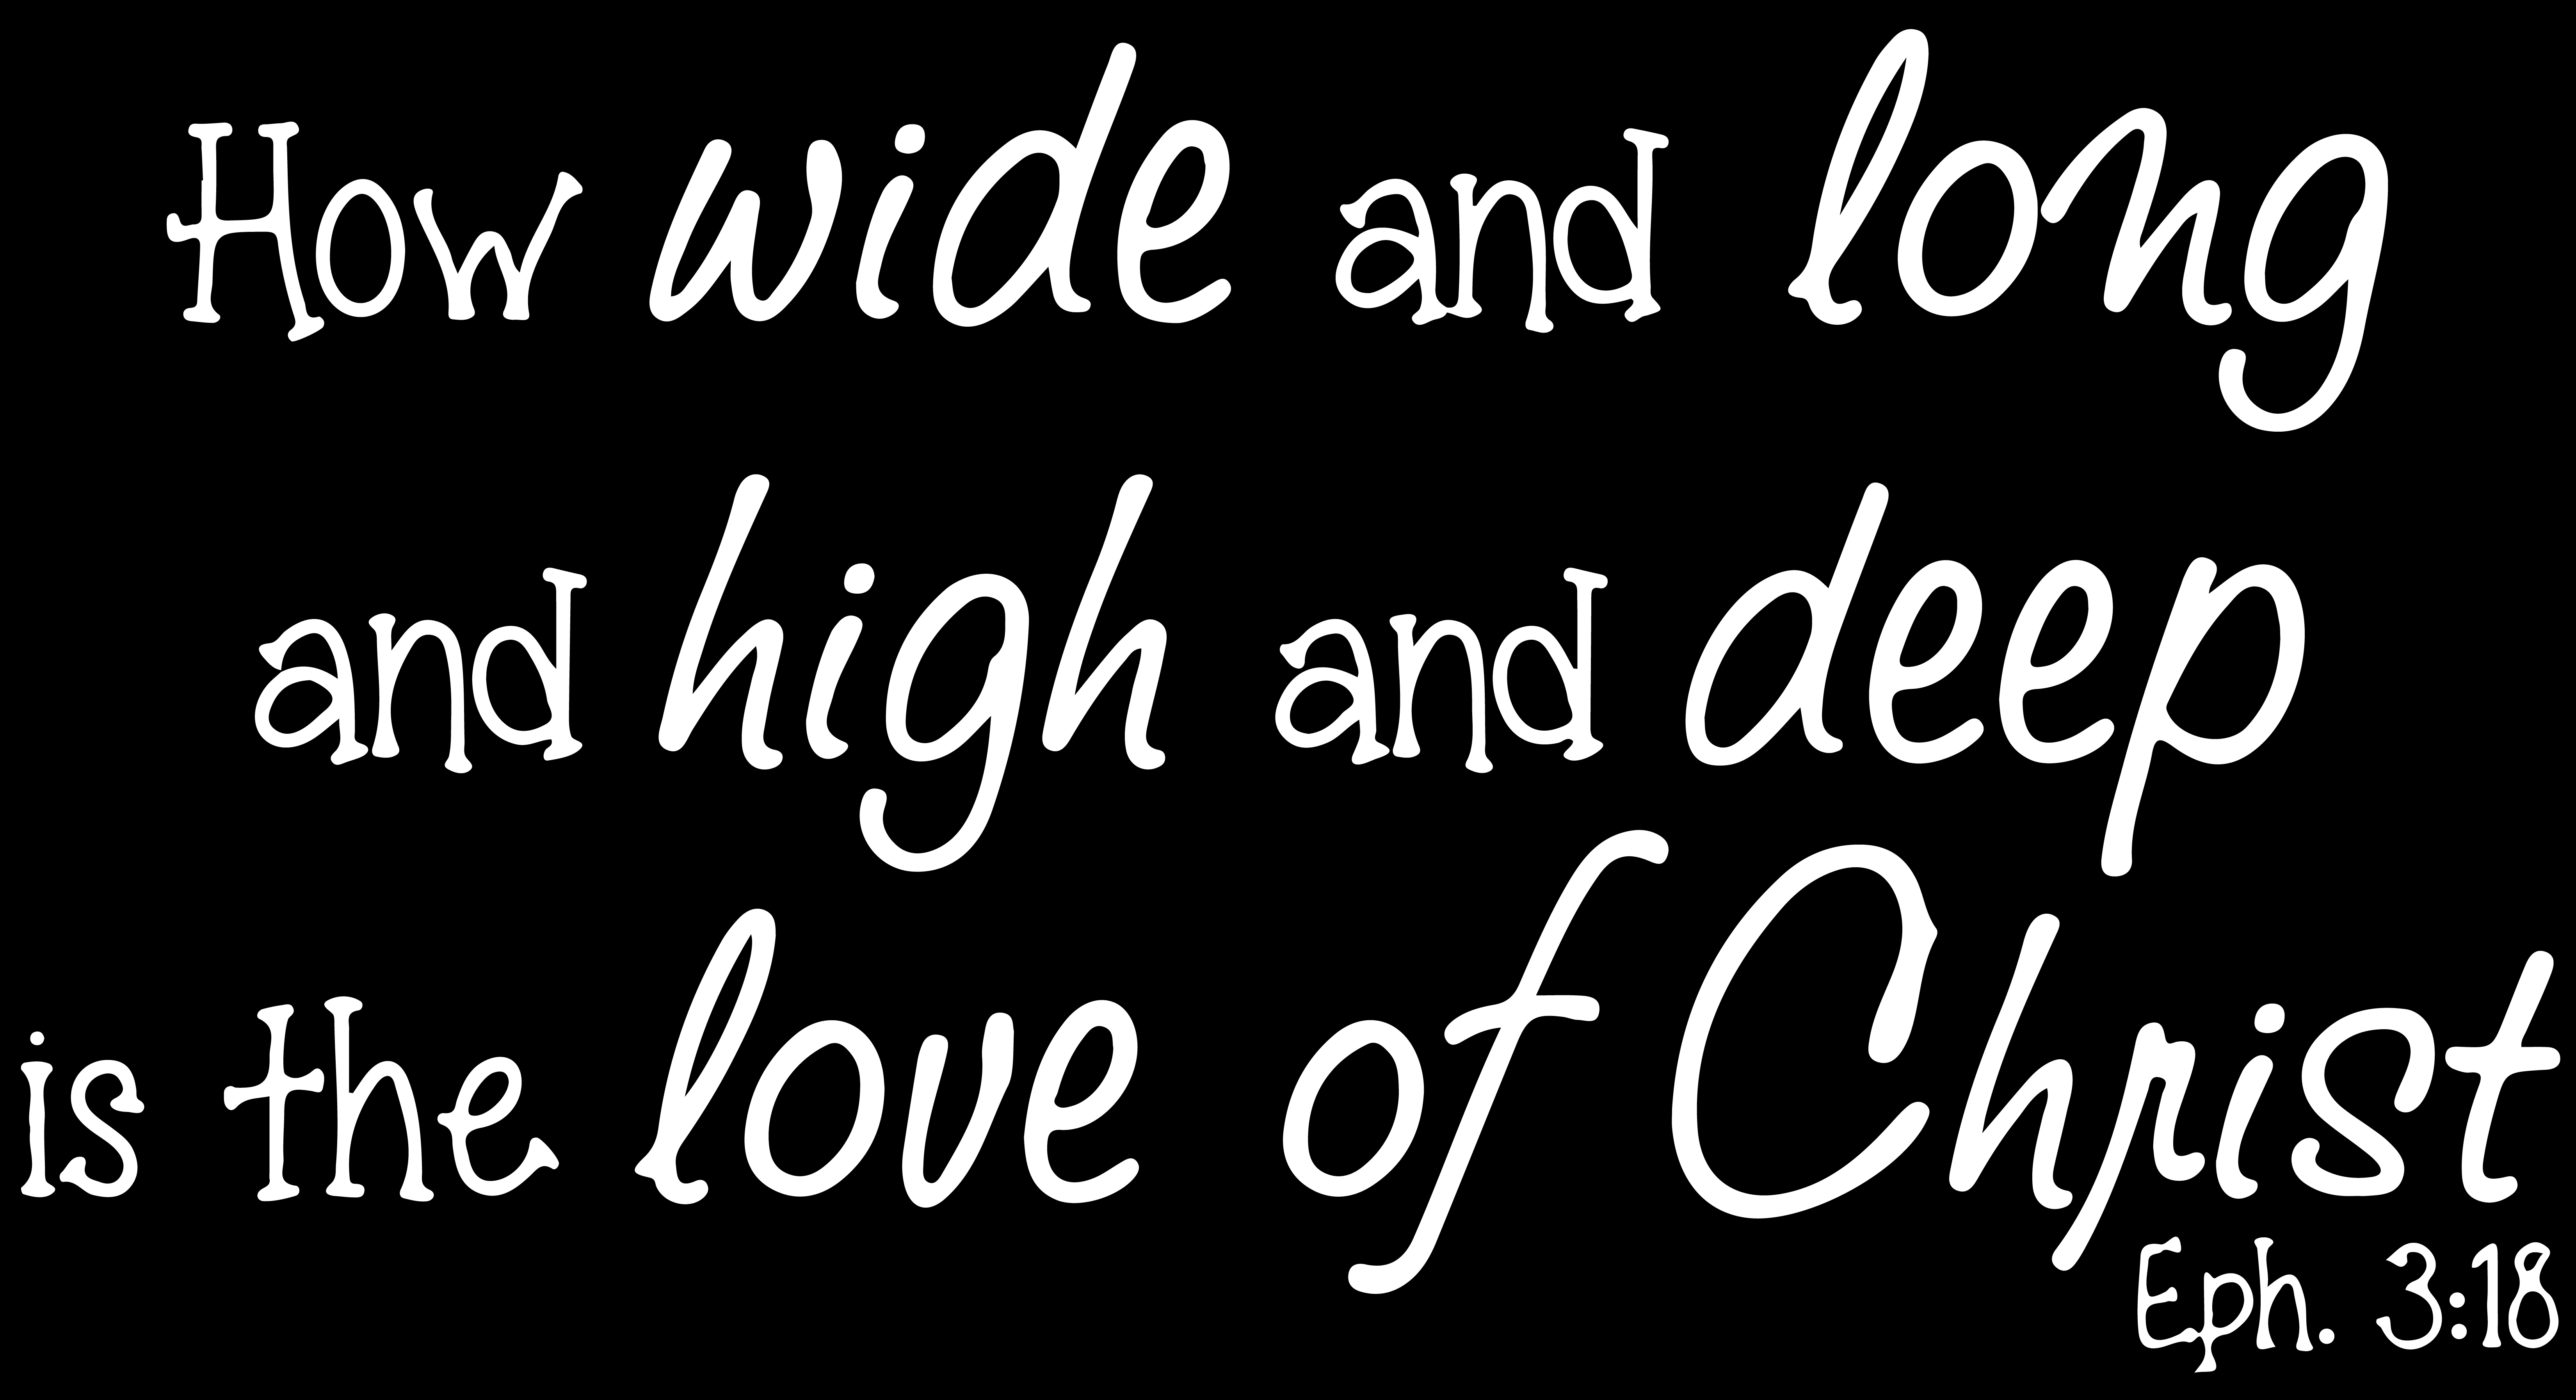 How wide and long
and high and deep
is the love of Christ
Eph. 3:18